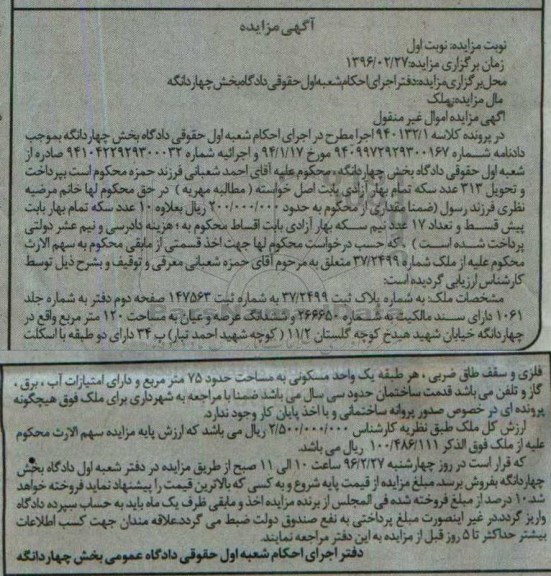 آگهی مزایده
نوبت مزایده: نوبت اول
زمان برگزاری مزایده: ۱۳۹۶/۰۲/۲۷
محل برگزاری مزایده: دفتر اجرای احکام شعبه اول حقوقی دادگاه بخش چهاردانگه
مال مزایده: ملک
آگهی مزایده اموال غیر منقول
در پرونده کلاسه ۹۴۰۱۳۲/۱ اجرا مطرح در اجرای احکام شعبه اول حقوقی دادگاه بخش چهاردانگه بموجب
دادنامه شماره ۹۴۰۹۹۷۲۹۲۹۳۰۰۱۶۷ مورخ ۹۴/۱/۱۷ و اجرائیه شماره ۹۴۱۰۴۲۲۹۲۹۳۰۰۰۳۲ صادره از
شعبه اول حقوقی دادگاه بخش چهاردانگه، محکوم علیه آقای احمد شعبانی فرزند حمزه محکوم است بپرداخت
و تحویل ۳۱۳ عدد سکه تمام بهار آزادی بابت اصل خواسته (مطالبه مهریه) در حق محکوم لها خانم مرضیه
نظری فرزند رسول (ضمنا مقداری از محکوم به حدود ۲۰۰/۰۰۰/۰۰۰ ریال بعلاوه ۱۰ عدد سکه تمام بهار بابت
پیش قسط و تعداد ۱۷ عدد نیم سکه بهار آزادی بابت اقساط محکوم به؛ هزینه دادرسی و نیم عشر دولتی
پرداخت شده است) . که حسب درخواست محکوم لها جهت اخذ قسمتی از مابقی محکوم به سهم الارث
محکوم علیه از ملک شماره ۳۷/۲۴۹۹ متعلق به مرحوم آقای حمزه شعبانی معرفی و توقیف و بشرح ذیل توسط
کارشناس ارزیابی گردیده است:
مشخصات ملک: به شماره پلاک ثبت ۳۷/۲۴۹۹ به شماره ثبت ۱۴۷۵۶۳ صفحه دوم دفتر به شماره جلد
۱۰۶۱ دارای سند مالکیت به شماره ۲۶۶۶۵۰ و ششدانگ عرصه و عیان به مساحت ۱۲۰ متر مربع واقع در
چهاردانگه خیابان شهید هیدخ کوچه گلستان ۱۱/۲ (کوچه شهید احمد تبار) پ ۳۴ دارای دو طبقه با اسکلت
فلزی و سقف طاق ضربی، هر طبقه یک واحد مسکونی به مساحت حدود ۷۵ متر مربع و دارای امتیازات آب، برق،
گاز و تلفن می باشد قدمت ساختمان حدود سی سال می باشد ضمنا با مراجعه به شهرداری برای ملک فوق هیچگونه
پرونده ای در خصوص صدور پروانه ساختمانی و یا اخذ پایان کار وجود ندارد.
ارزش کل ملک طبق نظریه کارشناس ۲/۵۰۰/۰۰۰/۰۰۰ ریال می باشد که ارزش پایه مزایده سهم الارث محکوم
علیه از ملک فوق الذکر ۱۰۰/۴۸۶/۱۱۱ ریال می باشد.
که قرار است در روز چهارشنبه ۹۶/۲/۲۷ ساعت ۱۰ الی ۱۱ صبح از طریق مزایده در دفتر شعبه اول دادگاه بخش
چهاردانگه بفروش برسد. مبلغ مزایده از قیمت پایه شروع و به کسی که بالاترین قیمت را پیشنهاد نماید فروخته خواهد
شد. ۱۰ درصد از مبلغ فروخته شده فی المجلس از برنده مزایده اخذ و مابقی ظرف یک ماه باید به حساب سپرده دادگاه
واریز گردد. در غیر اینصورت مبلغ پرداختی به نفع صندوق دولت ضبط می گردد. علاقه مندان جهت کسب اطلاعات
بیشتر حداکثر تا ۵ روز قبل از مزایده به این دفتر مراجعه نمایند.
دفتر اجرای احکام شعبه اول حقوقی دادگاه عمومی بخش چهاردانگه